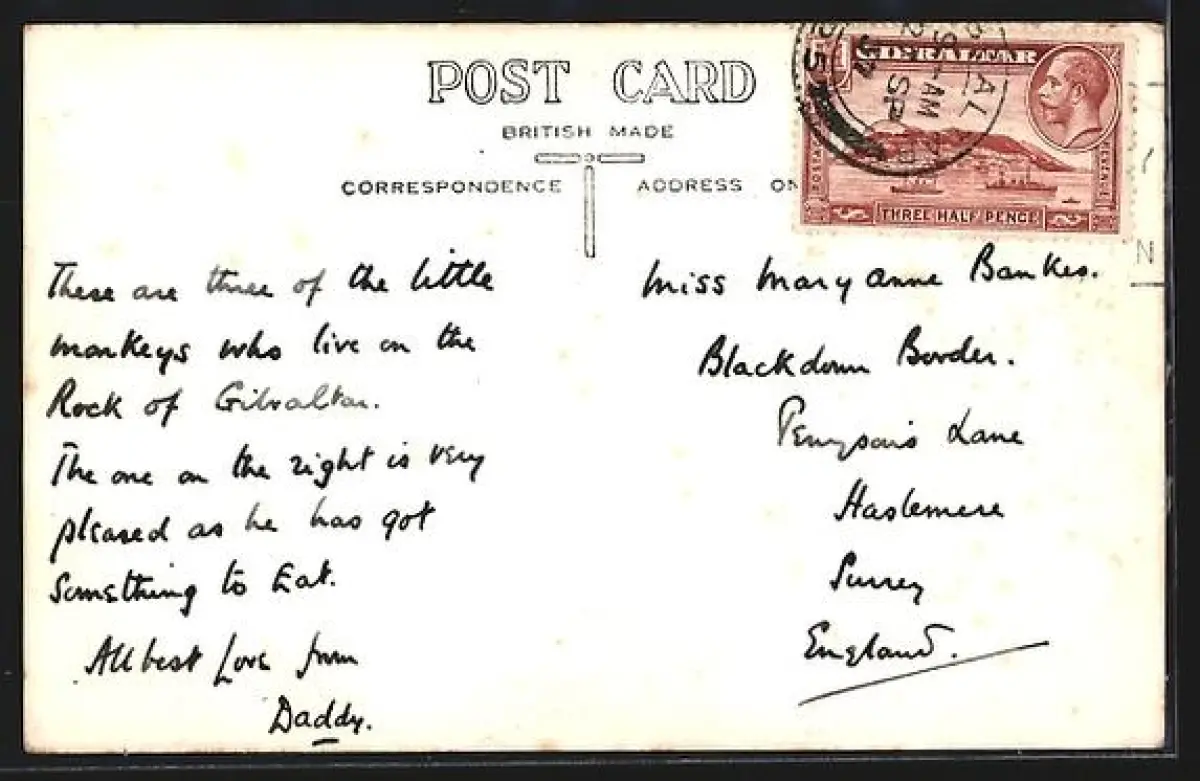 POST CARD
BRITISH MADE
CORRESPONDENCE
ADDRESS ON
GIBRALTAR
POSTAGE
THREE HALF PENCE
AM
SP
25
N
These are three of the little
monkeys who live on the
Rock of Gibraltar.
The one on the right is very
pleased as he has got
Something to Eat.
All best Love from
Daddy.
Miss Maryanne Bankes.
Blackdown Border.
Tennyson's Lane
Haslemere
Surrey
England.